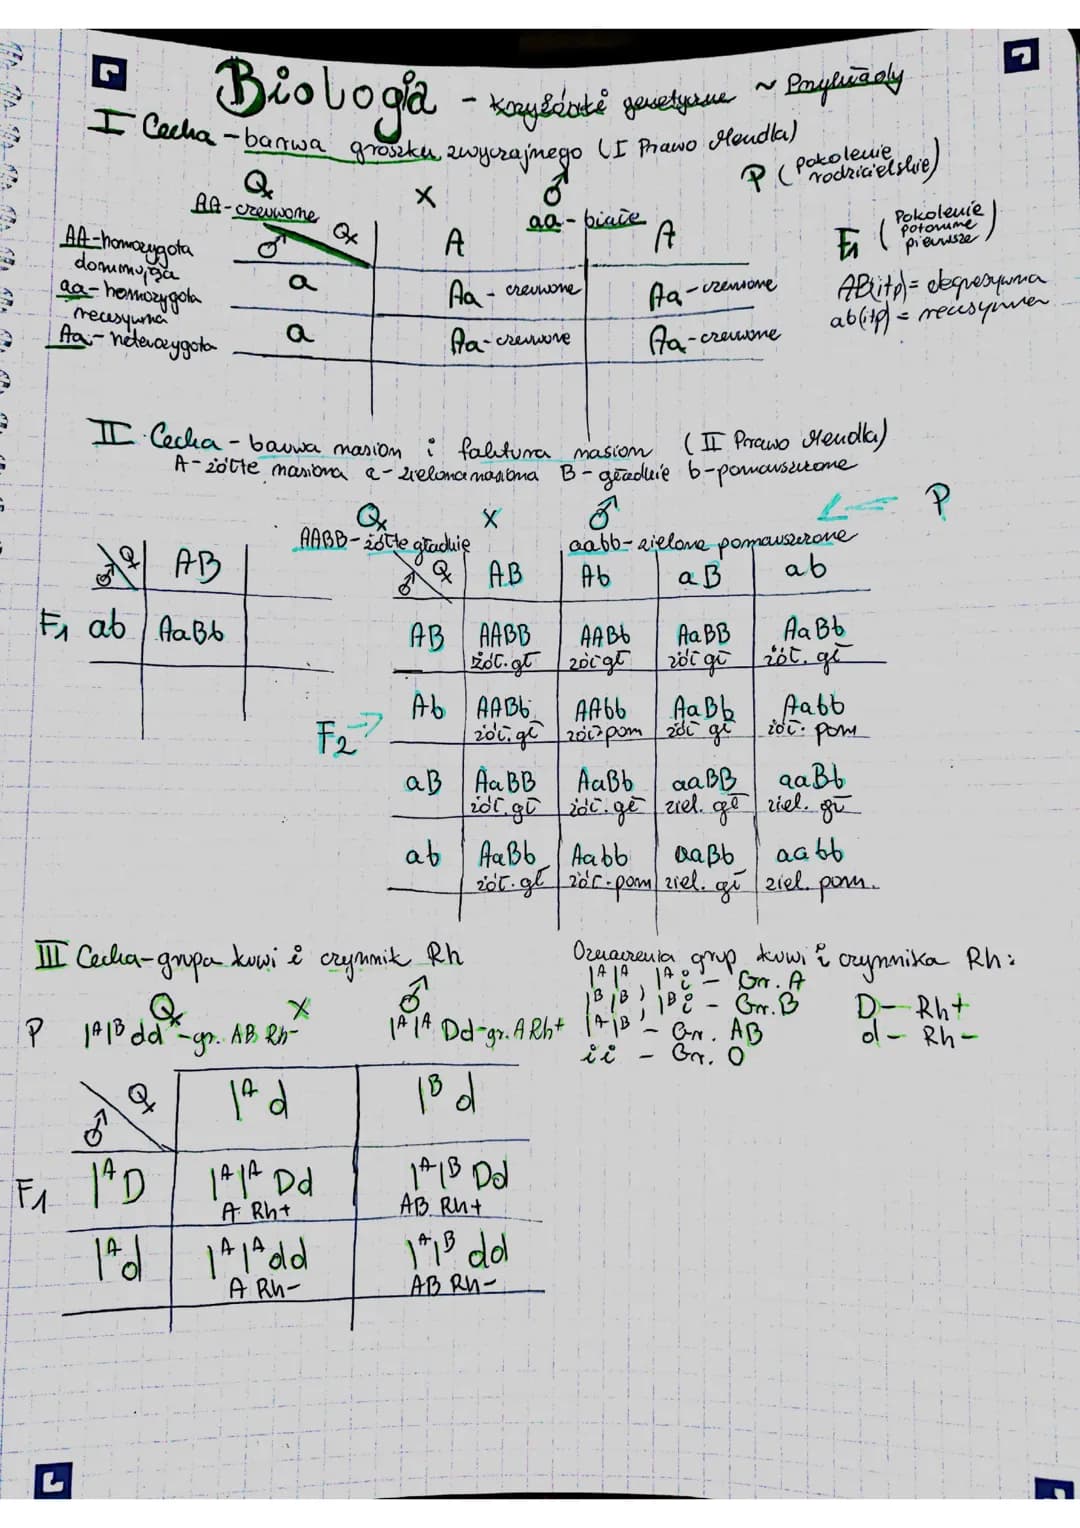 Biologia - krzyżówki genetyczne ~ Przykłady
I Cecha - barwa groszku zwyczajnego (I Prawo Mendla)
P (pokolenie rodzicielskie)
♀ X ♂
AA - czerwone aa - białe
F1 (Pokolenie potomne pierwsze)
AA - homozygota dominująca
aa - homozygota recesywna
Aa - heterozygota
♂ ♀ A A
a Aa - czerwone Aa - czerwone
a Aa - czerwone Aa - czerwone
AB(itp) =
ab(itp) = recesywna
II Cecha - barwa nasion i faktura nasion (II Prawo Mendla)
A - żółte nasiona a - zielone nasiona B - gładkie b - pomarszczone
♀ X ♂ P
AABB - żółte gładkie aabb - zielone pomarszczone
♂ ♀ AB
F1 ab AaBb
F2
♂ ♀ AB Ab aB ab
AB AABB AABb AaBB AaBb
żół. gł żół gł żół gł żół. gł
Ab AABb AAbb AaBb Aabb
żół. gł żół pom żół gł żół. pom
aB AaBB AaBb aaBB aaBb
żół. gł żół. gł ziel. gł ziel. gł
ab AaBb Aabb aaBb aabb
żół. gł żół. pom ziel. gł ziel. pom.
III Cecha - grupa krwi i czynnik Rh
♀ X ♂
P IᴬIᴮ dd - gr. AB Rh- IᴬIᴬ Dd - gr. A Rh+
Oznaczenia grup krwi i czynnika Rh:
IᴬIᴬ, Iᴬi - Gr. A
IᴮIᴮ, Iᴮi - Gr. B
IᴬIᴮ - Gr. AB
ii - Gr. O
D - Rh+
d - Rh-
♂ ♀ Iᴬ d Iᴮ d
F1 IᴬD IᴬIᴬ Dd IᴬIᴮ Dd
A Rh+ AB Rh+
Iᴬd IᴬIᴬ dd IᴬIᴮ dd
A Rh- AB Rh-